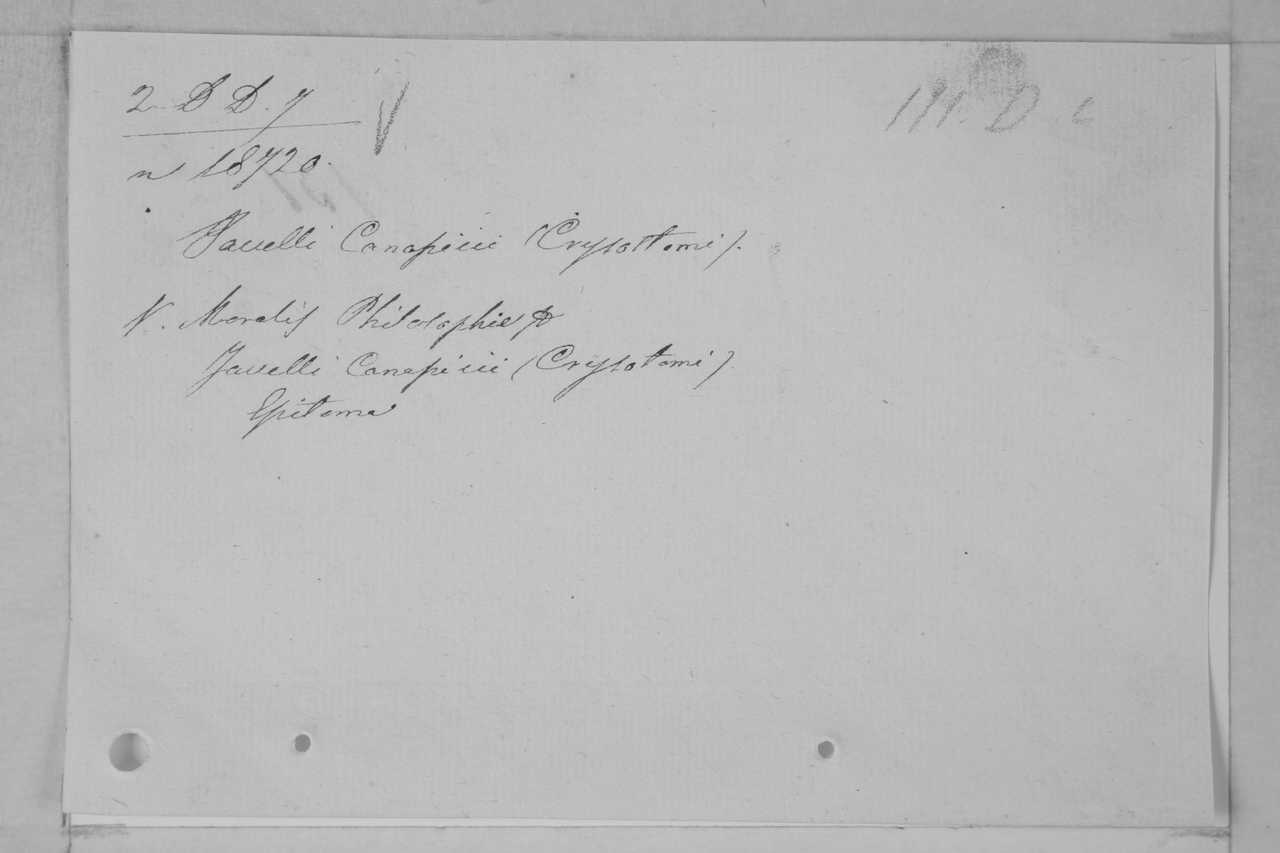 2 D D. 7
191. D c
n 18720.
Javelli Canapicii (Crysostomi).
V. Moralis Philosophie &
Javelli Canapicii (Crysotomi).
Epitome